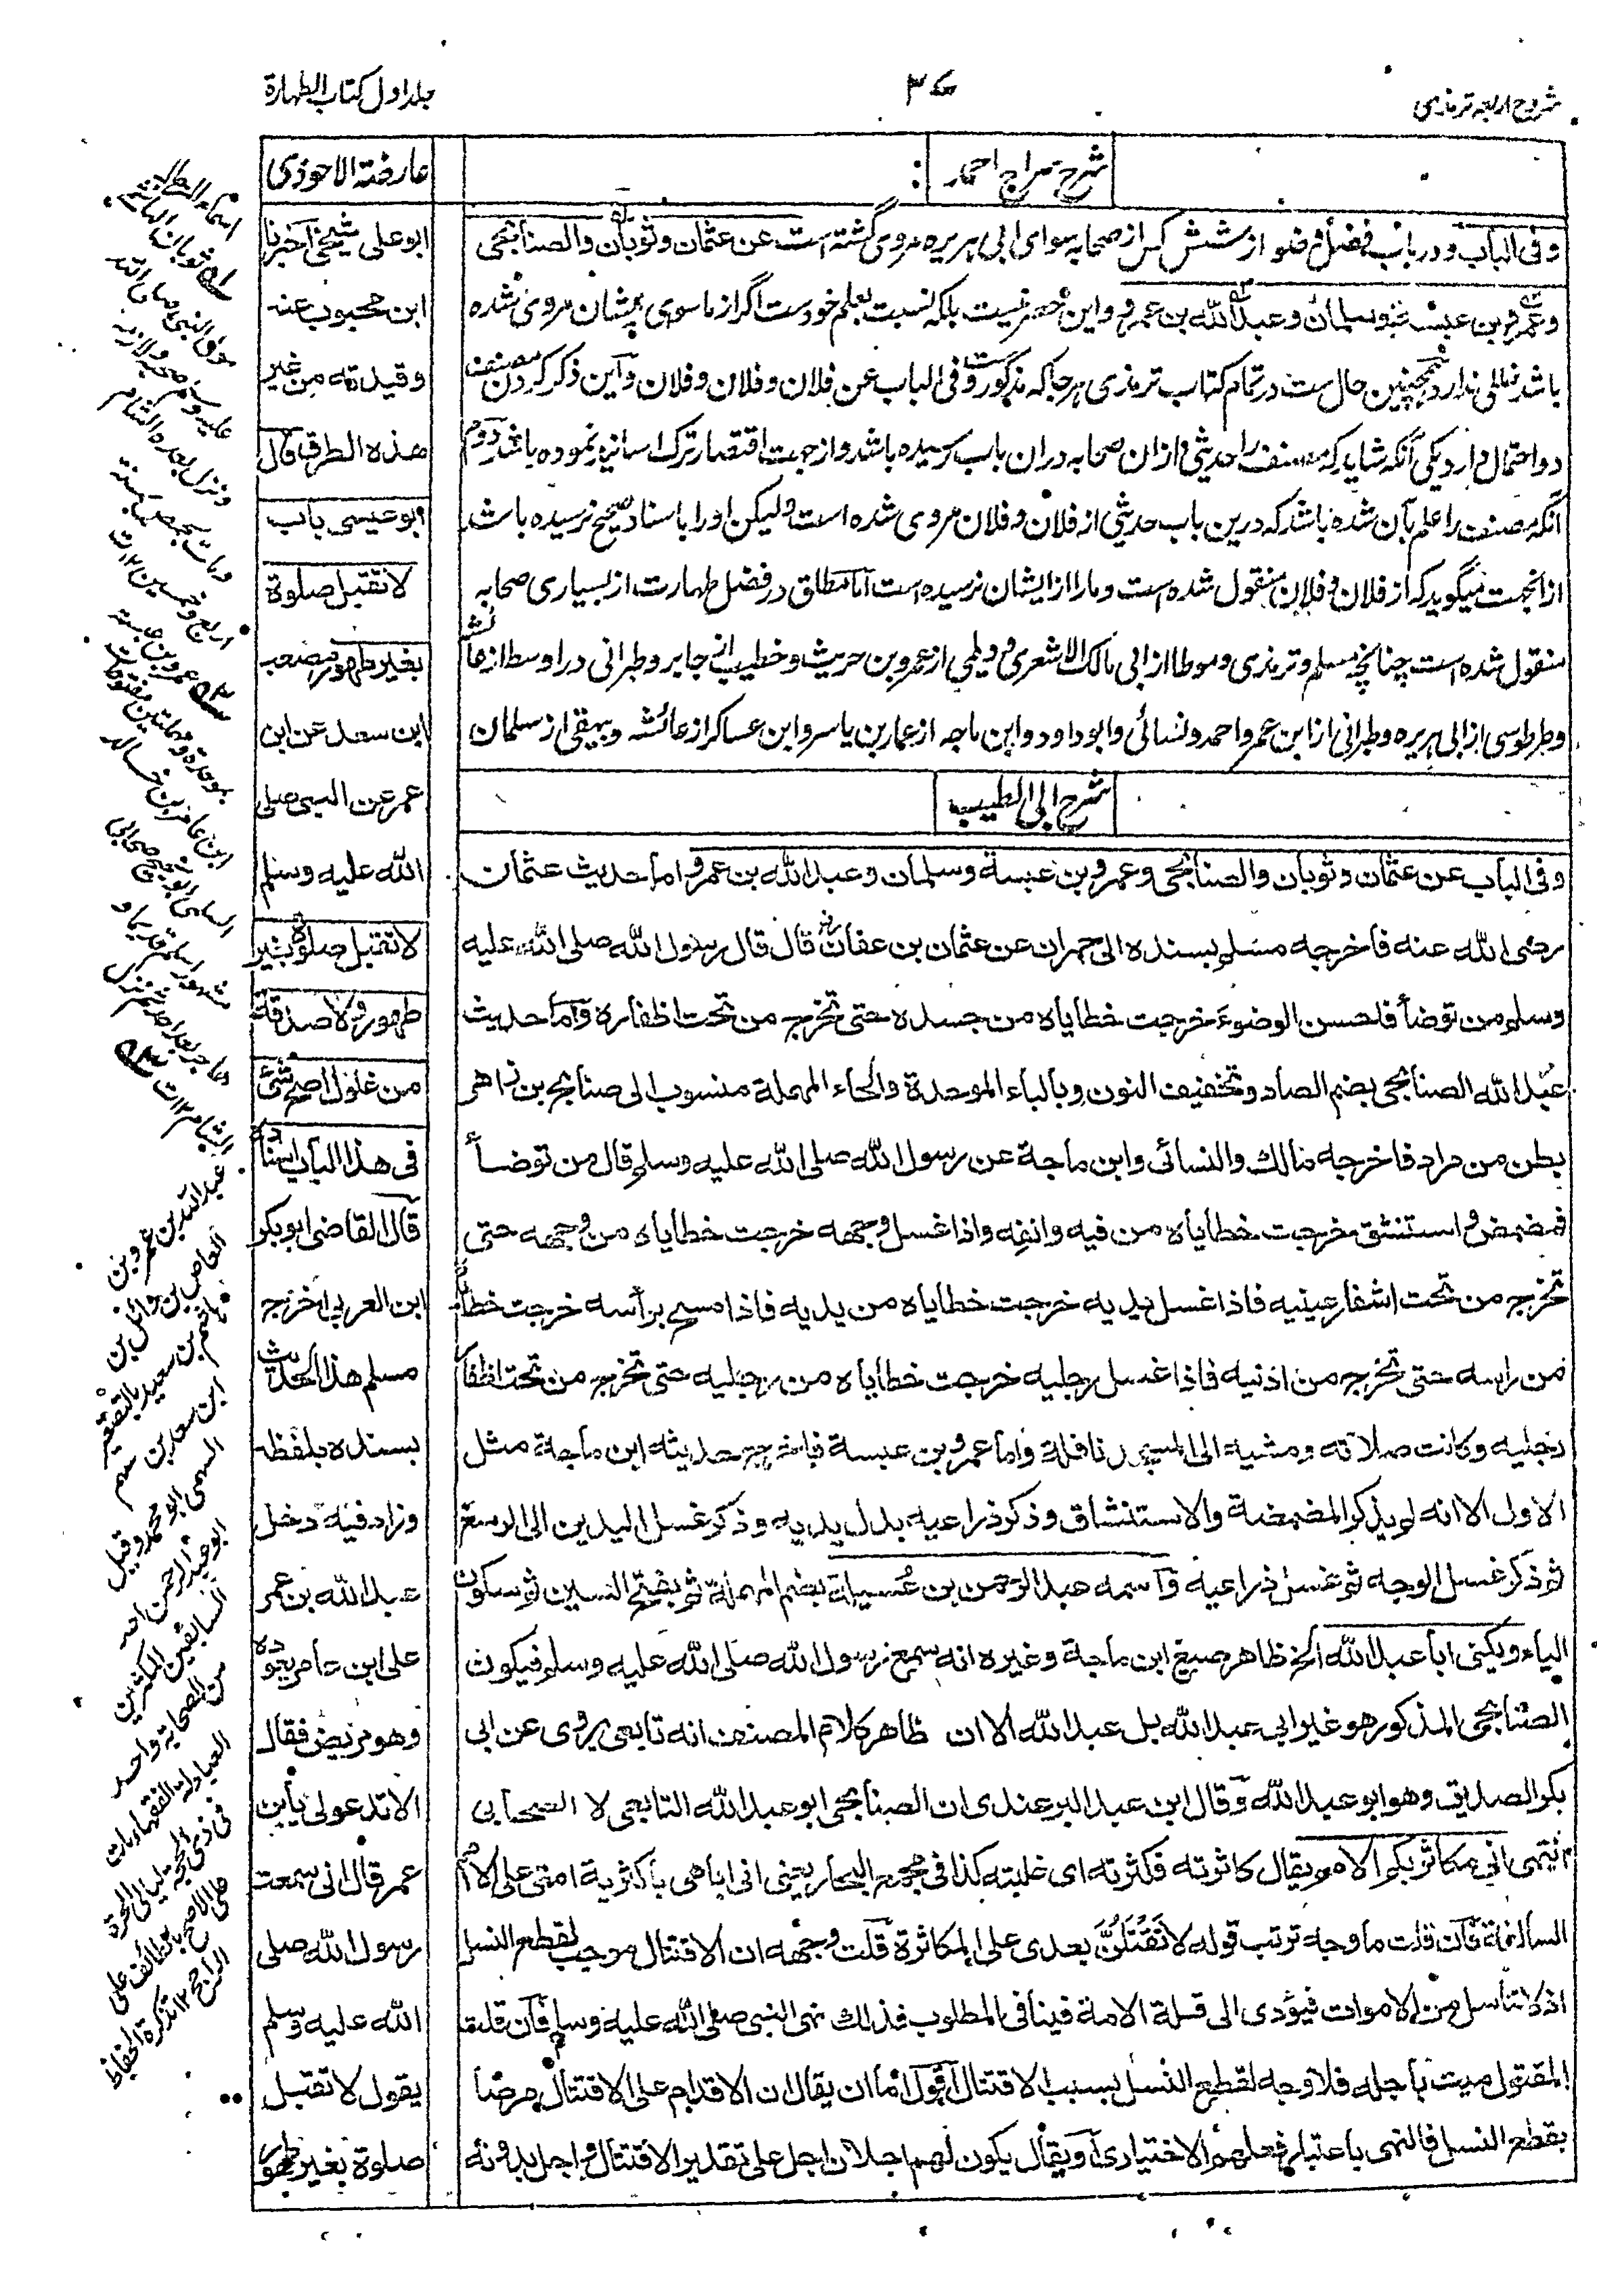 شروح اربعہ ترمذی
۳۷
جلد اول کتاب الطہارۃ
شرح سراج احمد
وفی الباب و در باب فضل وضو از شش کس از صحابہ سوای ابی ہریرہ مروی گشتہ است عن عثمان وثوبان والصنابحی
وعمرو بن عبسۃ وسلمان وعبد اللہ بن عمرو واین حصر نیست بلکہ نسبت بعلم خود ست اگر از ماسوی ایشان مروی شدہ
باشد خللی ندارد ہمچنین حال ست در تمام کتاب ترمذی ہر جا کہ مذکور ست وفی الباب عن فلان وفلان وفلان وآین ذکر کردن مصنف
دو احتمال دارد یکی آنکہ شاید کہ مصنف را حدیثی از ان صحابہ دران باب رسیدہ باشد و از جہت اقتصار ترک اسانید نمودہ باشد دوم
آنکہ مصنف را علم بآن شدہ باشد کہ درین باب حدیثی از فلان و فلان مروی شدہ است ولیکن او را باسناد صحیح نرسیدہ باشد
ازانجہت میگوید کہ از فلان و فلان منقول شدہ است و مارا از ایشان نرسیدہ است اما مطلق در فضل طہارت از بسیاری صحابہ
منقول شدہ است چنانچہ مسلم و ترمذی و موطا از ابی مالک الاشعری و دیلمی از عمرو بن حریث و خطیب از جابر و طبرانی در اوسط از عائشہ
و طرطوسی از ابی ہریرہ و طبرانی از ابن عمر و احمد و نسائی و ابو داود و ابن ماجہ از عمار بن یاسر و ابن عساکر از عائشہ و بیہقی از سلمان
شرح ابی الطیب
وفی الباب عن عثمان وثوبان والصنابحی وعمرو بن عبسة وسلمان وعبد الله بن عمرو اما حدیث عثمان
رضی الله عنه فاخرجه مسلم بسنده الی حمران عن عثمان بن عفان قال قال رسول الله صلی الله علیه
وسلم من توضأ فاحسن الوضوء خرجت خطایاه من جسده حتی تخرج من تحت اظفاره وآما حدیث
عبد الله الصنابحی بضم الصاد وتخفیف النون وبالباء الموحدة والحاء المهملة منسوب الی صنابح بن زاهر
بطن من مراد فاخرجه مالك والنسائی وابن ماجة عن رسول الله صلی الله علیه وسلم قال من توضأ
فمضمض واستنشق خرجت خطایاه من فیه وانفه واذا غسل وجهه خرجت خطایاه من وجهه حتی
تخرج من تحت اشفار عینیه فاذا غسل یدیه خرجت خطایاه من یدیه فاذا مسح برأسه خرجت خطایاه
من راسه حتی تخرج من اذنیه فاذا غسل رجلیه خرجت خطایاه من رجلیه حتی تخرج من تحت اظفار
رجلیه وکانت صلاته ومشیه الی المسجد نافلة واما عمرو بن عبسة فاخرج حدیثه ابن ماجة مثل
الاول الا انه لم یذکر المضمضة والاستنشاق وذکر ذراعیه بدل یدیه وذکر غسل الیدین الی الرسغ
ثم ذکر غسل الوجه ثم غسل ذراعیه وآسمه عبد الرحمن بن عُسیلة بضم المهملة ثم بفتح السین ثم سکون
الیاء ویکنی ابا عبد الله الخ ظاهر صیغ ابن ماجة وغیره انه سمع رسول الله صلی الله علیه وسلم فیکون
الصنابحی المذکور هو غیر ابی عبد الله بل عبد الله الا ان ظاهر کلام المصنف انه تابعی یروی عن ابی
بکر الصدیق وهو ابو عبد الله وقال ابن عبد البر عندی ان الصنابحی ابو عبد الله التابعی لا الصحابی
انتهی انی مکاثر بکم الامم یقال کاثرته فکثرته ای غلبته کذا فی مجمع البحار یعنی انی اباهی باکثریة امتی علی الامم
السالفة فآن قلت ما وجه ترتب قوله لا تَقْتَتِلُنَّ بعدی علی المکاثرة قلت وجهه ان الاقتتال موجب لقطع النسل
اذ لا تناسل من الاموات فیؤدی الی قلة الامة فینافی المطلوب فذلك نهی النبی صلی الله علیه وسلم فآن قلت
المقتول میت باجله فلا وجه لقطع النسل بسبب الاقتتال آقول اما ان یقال ان الاقدام علی الاقتتال
بقطع النسل فالنهی باعتبار فعلهم الاختیاری آو یقال یکون لهم اجلان اجل علی تقدیر الاقتتال واجل بدونه
عارضة الاحوذی
ابو علی شیخی اخبرنا
ابن محبوب عنه
وقیدته من غیر
هذه الطرق قال
ابو عیسی باب
لا تقبل صلوة
بغیر طهور مصعب
ابن سعد عن ابن
عمر عن النبی صلی
الله علیه وسلم
لا تقبل صلوة بغیر
طهور ولا صدقة
من غلول اصح شئ
فی هذا الباب اسنادہ
قال القاضی ابو بکر
ابن العربی اخرج
مسلم هذا الحدیث
بسنده بلفظه
وزاد فیه دخل
عبد الله بن عمر
علی ابن عامر یعوده
وهو مریض فقال
الا تدعو لی یا بن
عمر قال انی سمعت
رسول الله صلی
الله علیه وسلم
یقول لا تقبل
صلوة بغیر طهور
عبد الله بن عمرو بن
العاص بن وائل بن
هاشم بن سعید بالتصغیر
ابن سعد بن سهم
السهمی ابو محمد وقیل
ابو عبد الرحمن احد
السابقین المکثرین
من الصحابة واحد
العبادلة الفقهاء مات
فی ذی الحجة لیالی الحرة
علی الاصح بالطائف علی
الراجح ۱۲ تذکرة الحفاظ